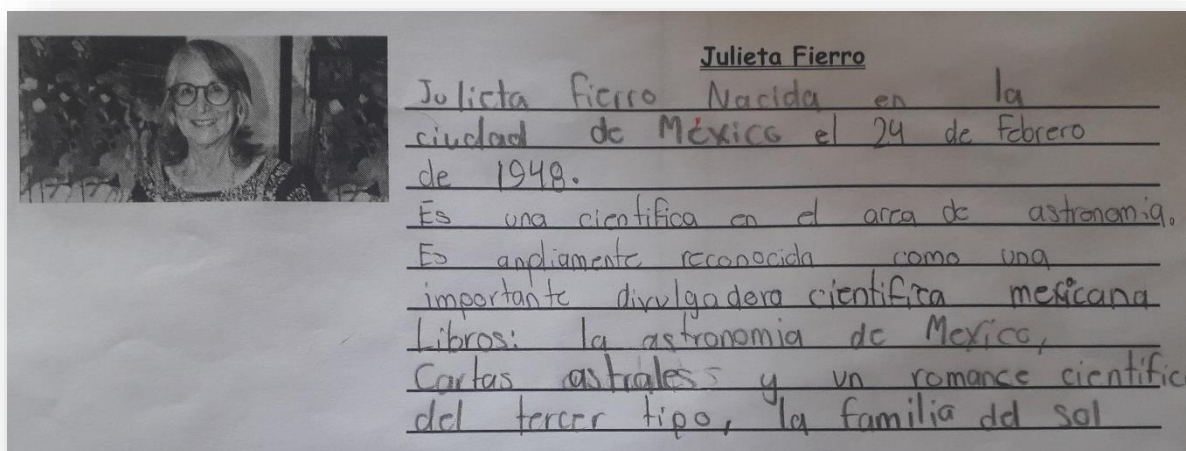 Julieta Fierro
Julieta Fierro Nacida en la
ciudad de México el 24 de Febrero
de 1948.
Es una cientifica en el area de astronomia.
Es anpliamente reconocida como una
importante divulgadora cientifica mexicana
Libros: la astronomia de Mexico,
Cartas astraless y un romance cientific
del tercer tipo, la familia del sol